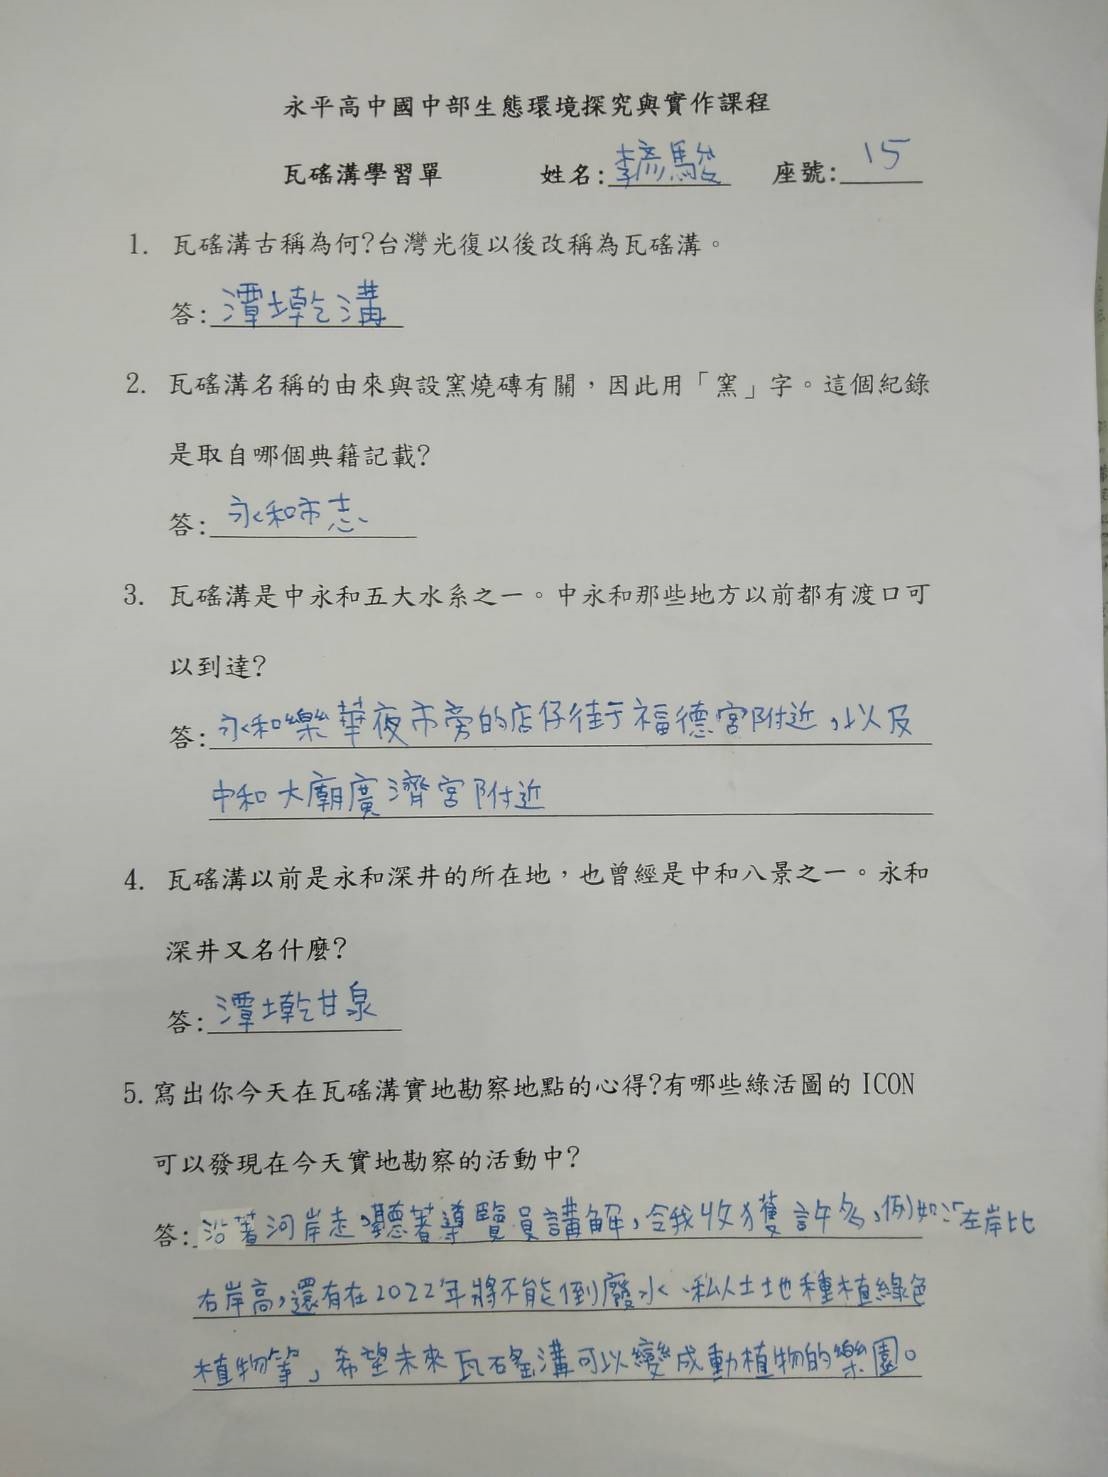 永平高中國中部生態環境探究與實作課程
瓦磘溝學習單 姓名:李彥駿 座號:15
1. 瓦磘溝古稱為何?台灣光復以後改稱為瓦磘溝。
答:潭墘溝
2. 瓦磘溝名稱的由來與設窯燒磚有關，因此用「窯」字。這個紀錄
是取自哪個典籍記載?
答:永和市志
3. 瓦磘溝是中永和五大水系之一。中永和那些地方以前都有渡口可
以到達?
答:永和樂華夜市旁的店仔街福德宮附近，以及
中和大廟廣濟宮附近
4. 瓦磘溝以前是永和深井的所在地，也曾經是中和八景之一。永和
深井又名什麼?
答:潭墘甘泉
5. 寫出你今天在瓦磘溝實地勘察地點的心得?有哪些綠活圖的 ICON
可以發現在今天實地勘察的活動中?
答:沿著河岸走，聽著導覽員講解，令我收獲許多，例如：左岸比
右岸高，還有在2022年將不能倒廢水、私人土地種植綠色
植物等，希望未來瓦磘溝可以變成動植物的樂園。